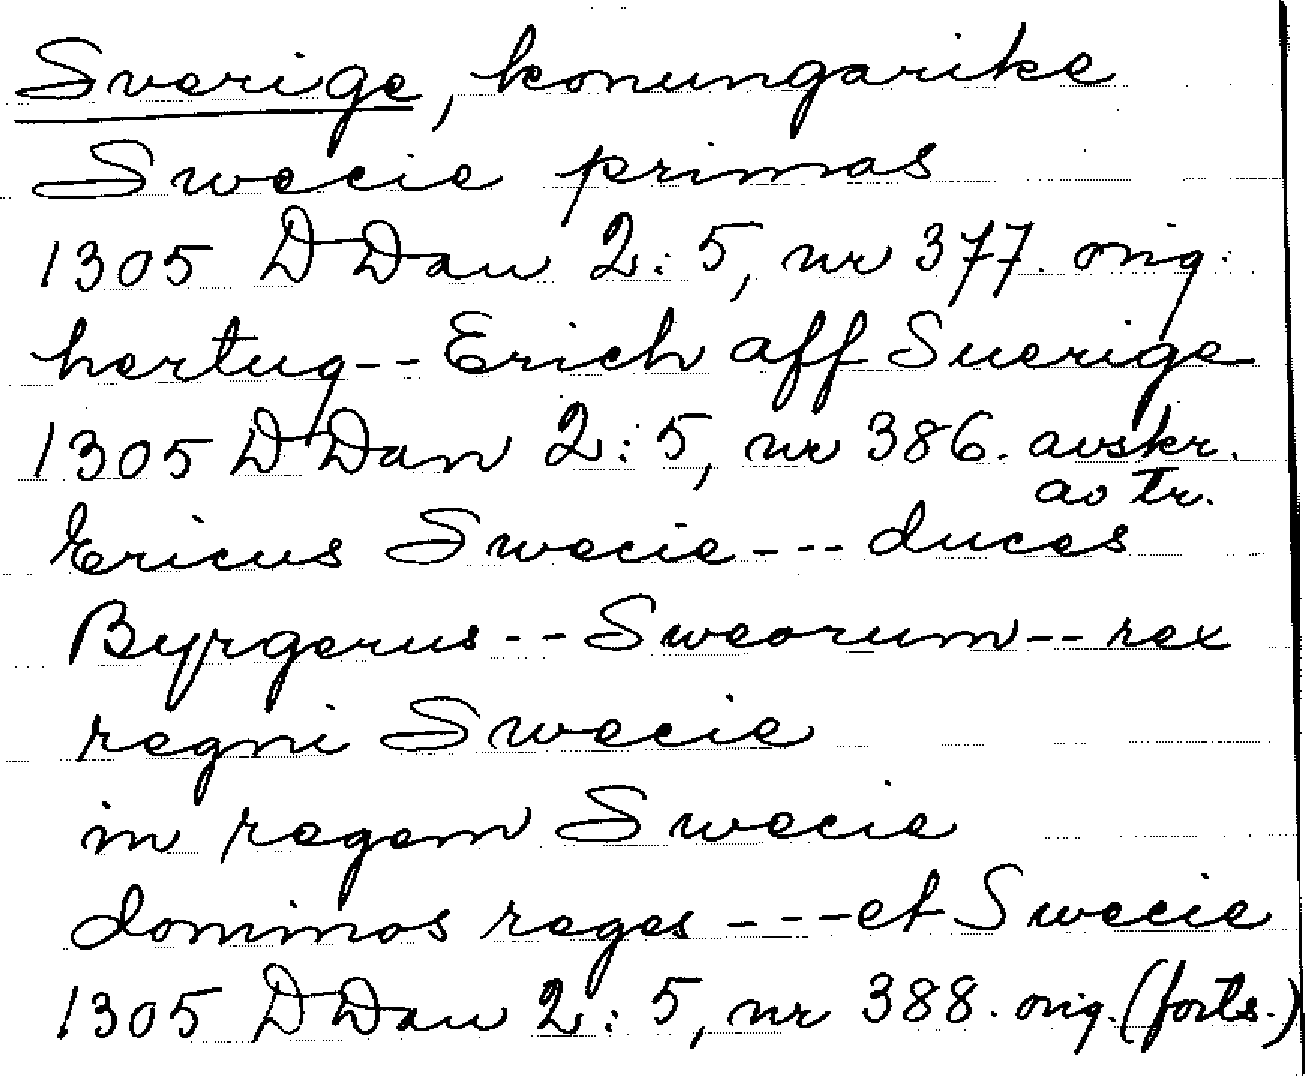 Sverige, konungarike
Swecie primas
1305 DDan 2:5, nr 377. orig.
hertug -- Erich aff Suerige
1305 DDan 2:5, nr 386. avskr.
av tr.
Ericus Swecie --- duces
Byrgerus -- Sweorum -- rex
regni Swecie
in regem Swecie
dominos reges --- et Swecie
1305 DDan 2:5, nr 388. orig. (forts.)